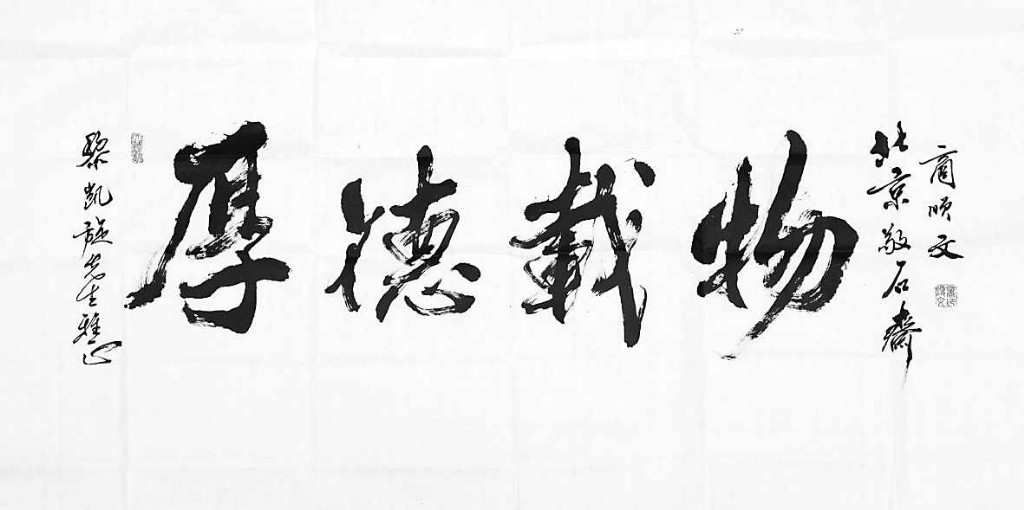 黎凯旋先生雅正
厚德载物
北京敬石斋
商顺文